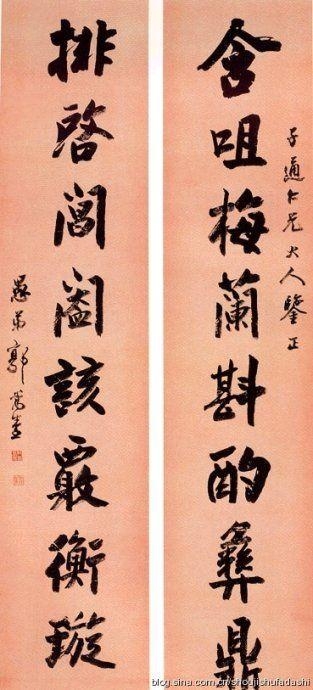 子通仁兄大人鑒正
含咀梅蘭斟酌彝鼎
排啓閶闔該覈衡鏇
愚弟郭嵩燾
blog.sina.com.cn/shoujishufadashi